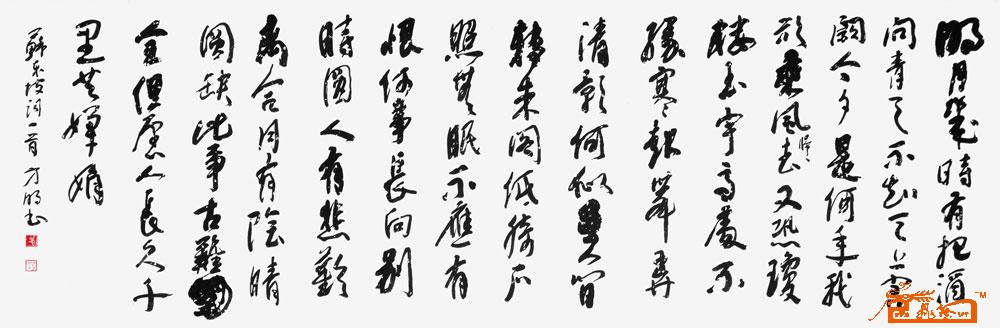 明月幾時有把酒
问青天不知天上宫
阙今夕是何年我
欲乘風歸去又恐瓊
楼玉宇高處不
勝寒起舞弄
清影何似人间
轉朱阁低绮户
照無眠不應有
恨何事長向别
時圆人有悲歡
離合月有陰晴
圆缺此事古難
全但愿人長久千
里共嬋娟
蘇东坡詞一首 方明书
TM